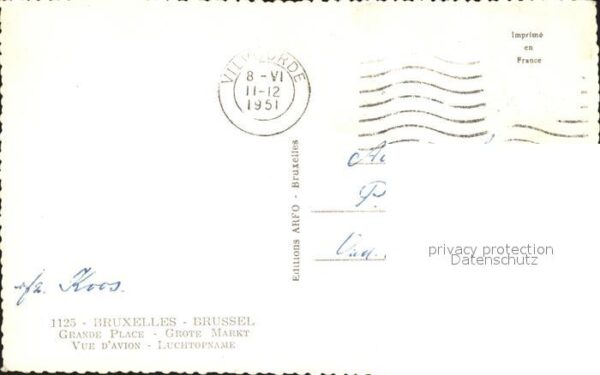 Imprimé
en
France
VILVOORDE
8 - VI
11-12
1951
Editions ARFO - Bruxelles
privacy protection
Datenschutz
Koos.
1125 - BRUXELLES - BRUSSEL
GRANDE PLACE - GROTE MARKT
VUE D'AVION - LUCHTOPNAME